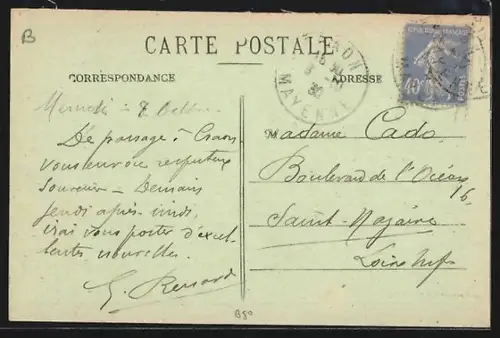 B
CARTE POSTALE
CORRESPONDANCE
ADRESSE
CRAON
MAYENNE
REPUBLIQUE FRANÇAISE
40c
POSTES
Mercredi 8 Octobre
De passage à Craon
vous envoie respectueux
Souvenir – Demain
jeudi après-midi,
irai vous porter d'excel-
lentes nouvelles.
G. Renard
Madame Cado,
Boulevard de l'Océan
16.
Saint-Nazaire
Loire Infre
B80